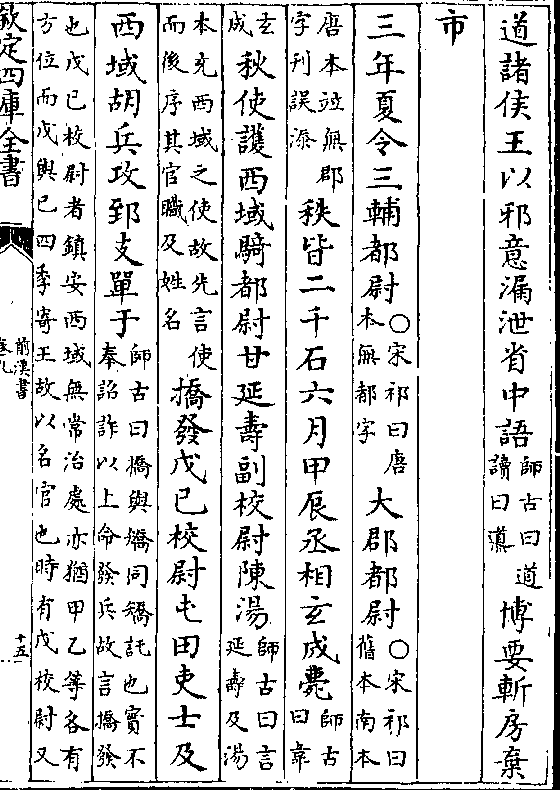 道諸侯王以邪意漏泄省中語師古曰道讀曰導博要斬房棄
市
三年夏令三輔都尉○宋祁曰唐本無都字大郡都尉○宋祁曰舊本南本
唐本竝無郡字刊誤添秩皆二千石六月甲辰丞相玄成薨師古曰韋
玄成秋使護西域騎都尉甘延壽副校尉陳湯師古曰言延壽及湯
本充西域之使故先言使而後序其官職及姓名撟發戊已校尉屯田吏士及
西域胡兵攻郅支單于師古曰撟與矯同矯託也實不奉詔詐以上命發兵故言撟發
也戊已校尉者鎮安西域無常治處亦猶甲乙等各有方位而戊與已四季寄王故以名官也時有戊校尉又
欽定四庫全書
前漢書
卷九
十五